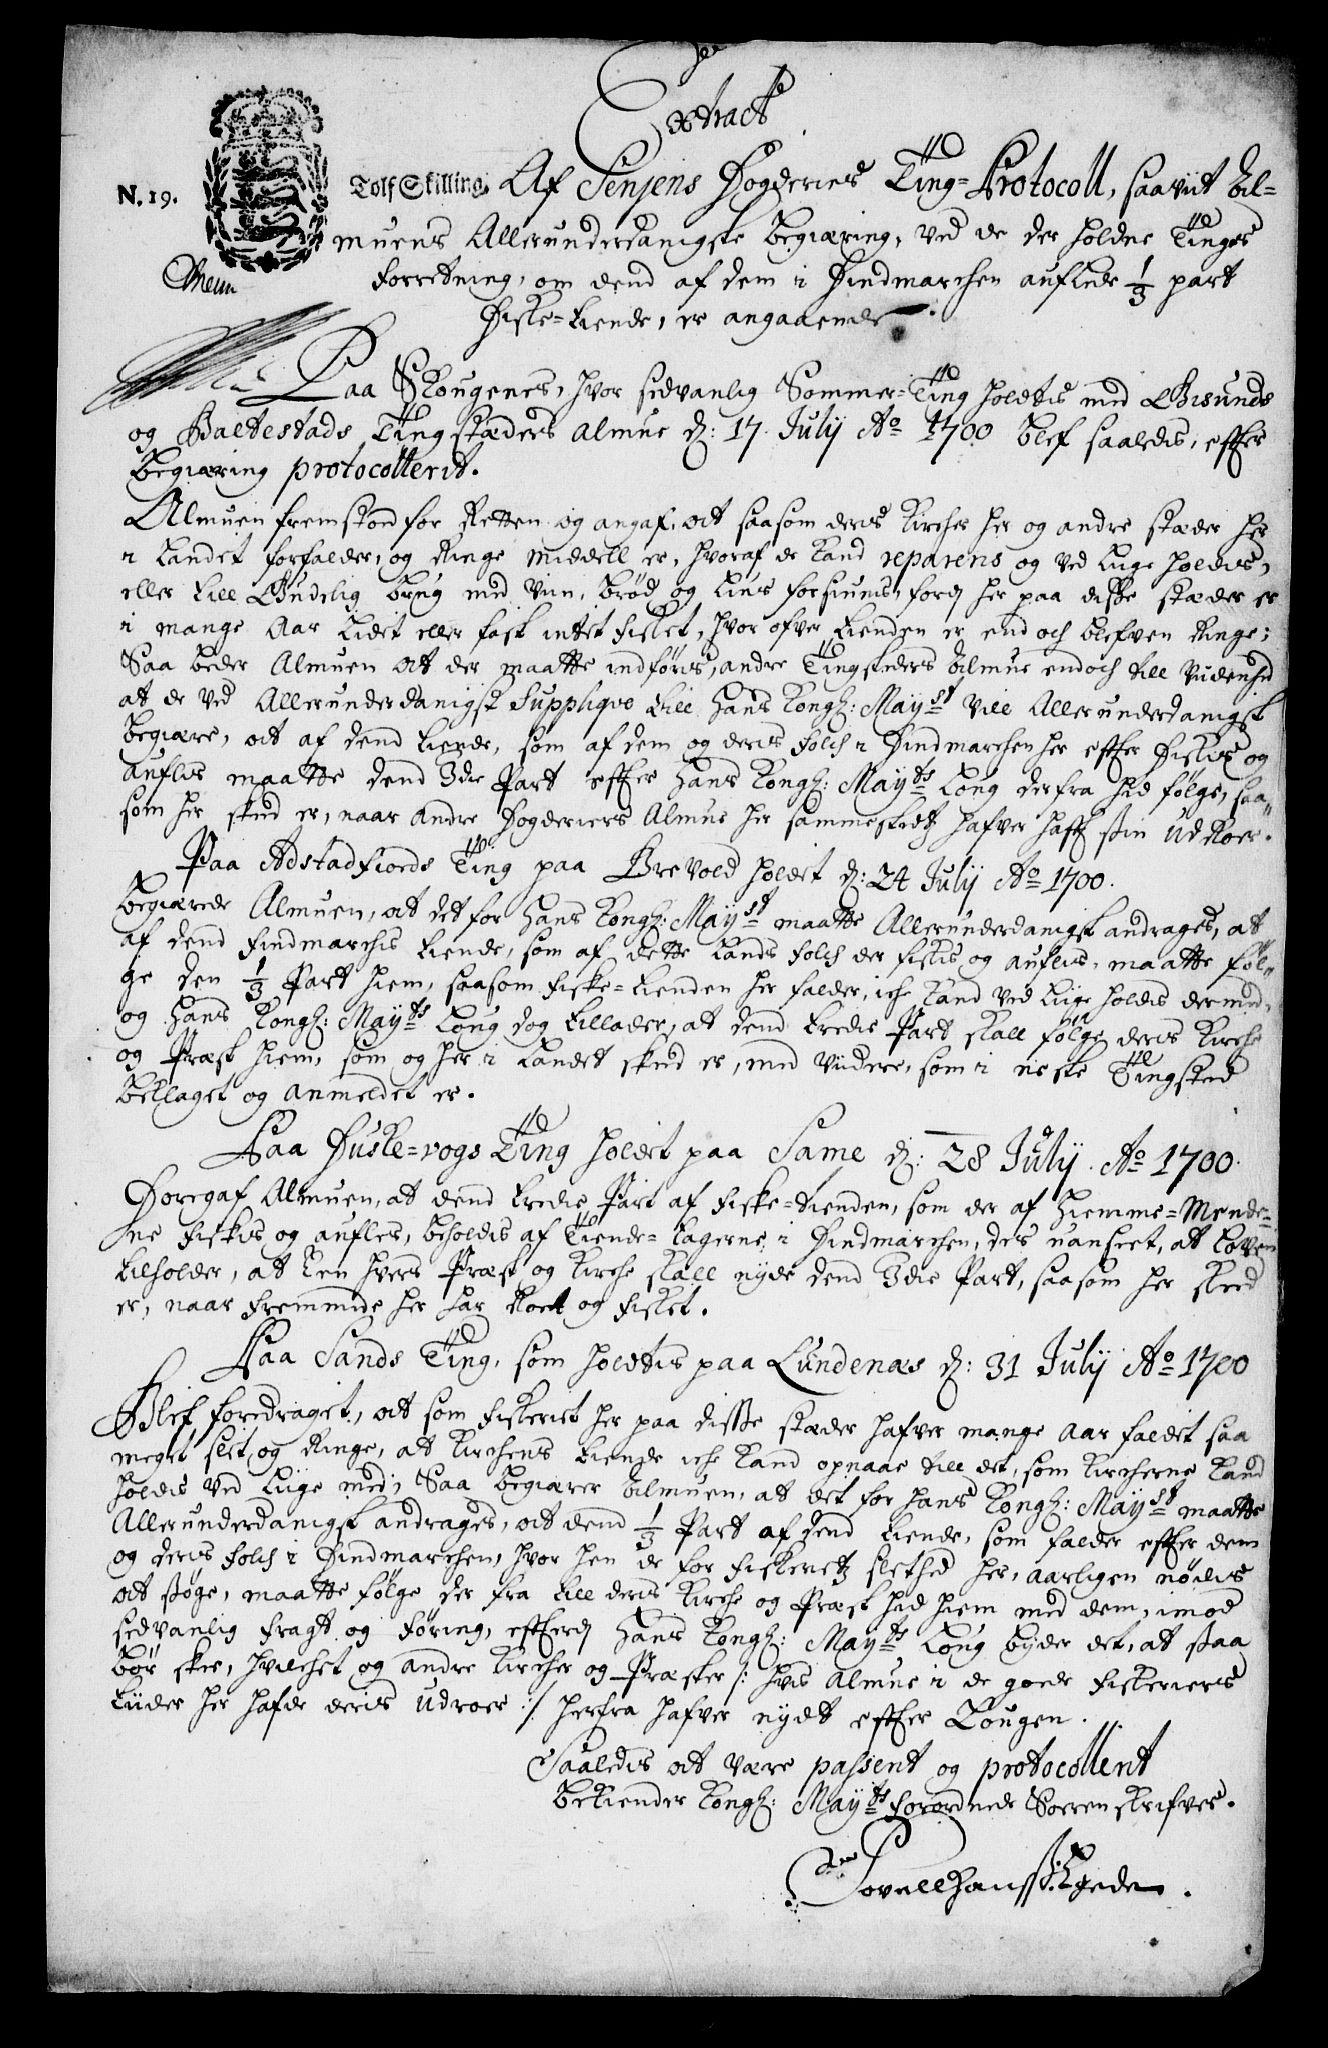 Extract
N. 19. Tolf Skilling. Af Senjens Fogderies Ting-Protocoll, saaviit Al-
muens Allerunderdanigste begiæring, ved de der holdne Tinges
forretning, om dend af dem i Findmarchen auflede 1/3 part
Fiske-tiende, er angaaende.
Paa Skougenes, hvor sedvanlig Sommer-Ting holdtis med Gisunds
og Baltestads Tingstæders almue d: 17 July Ao 1700 blef saaledis, effter
begiæring protocollerit.
Almuen fremstod for Retten og angaf, at saasom deris Kircher her og andre stæder her
i Landet forfalder, og Ringe middell er, hvoraf de kand repareris og ved lige holdis,
eller till Gudelig brug med Viin, brød og Lius forsiunis, fordj her paa disse stæder er
i mange Aar lidet eller fast intet fisket, hvor ofver tienden er end och blefven Ringe;
Saa beder Almuen at der maatte indføris, andre Tingsteders Almue endoch till videnhed
at de ved Allerunderdanigst Suppliqve till Hans Kongl: Mayst vill Allerunderdanigst
begiære, at af dend tiende, som af dem og deris folch i Findmarchen her effter fiskis og
aufles maatte dend 3die Part effter Hans Kongl: Mayts Loug derfra hid følge, saa-
som her skud er, naar andre Fogderiers Almue her sammestedtz hafver hafft sin Udroer.
Paa Astadfiords Ting paa Grevold holdet d: 24 July Ao 1700.
begiærede Almuen, at det for Hans Kongl: Mayst maatte Allerunderdanigst andrages, at
af dend findmarchis tiende, som af dette Lands folch der fiskis og aufles, maatte føl-
ge den 1/3 Part hiem, saasom fiske-tienden her falder, iche kand ved lige holdis dermed,
og Hans Kongl: Mayts Loug dog tillader, at dend tredie Part skall følge deris Kirche
og Præst hiem, som og her i Landet skud er, med viidere, som i neste Tingsted
beklaget og anmeldet er.
Paa Fuske-vogs Ting holdet paa Same d: 28 July Ao 1700.
Foregaf Almuen, at dend tredie Part af fiske-tienden, som der af Hiemme-Mende-
ne fiskis og aufles, beholdis af Tiende-tagerne i Findmarchen, des uanseet, at Loven
tilholder, at Een hvers Præst og Kirche skall nyde dend 3die Part, saasom her skeed
er, naar fremmede her har Roet og fisket.
Paa Sands Ting, som holdtis paa Lundenæs d: 31 July Ao 1700
Blef foredraget, at som fiskeriet her paa disse stæder hafver mange Aar faldet saa
meget slet og Ringe, at Kirchens tiende iche kand opnaae till det, som Kircherne kand
holdis ved lige med; Saa begiærer Almuen, at det for Hans Kongl: Mayst maatte
Allerunderdanigst andrages, at dend 1/3 Part af dend tiende, som falder effter dem
og deris folch i Findmarchen, hvor hen de for fiskeritz slethed her, aarligen nødis
at søge, maatte følge der fra till deris Kirche og Præst hid hiem med dem, imod
sedvanlig fragt og føring, effterdj Hans Kongl: Mayts Loug byder det, at saa
bør skee, hvilchet og andre Kircher og Præster /: hvis Almue i de goede fiskeriers
tiider her hafde deris Udroer :/ herfra hafver nydt effter Lougen.
Saaledis at være passerit og protocollerit
bekiender Kongl: Mayts forordnede Soeren skrifver.
Povell Hanssen Egede.